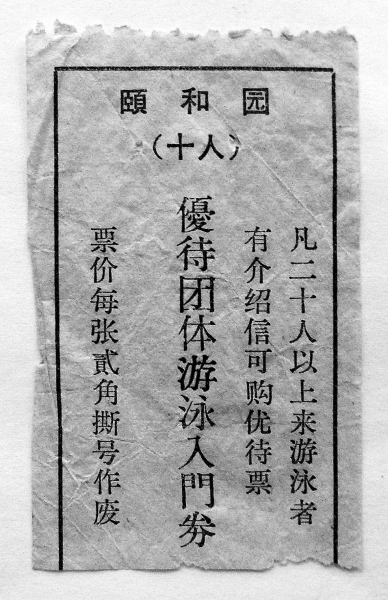 頤和园
（十人）
凡二十人以上来游泳者
有介绍信可购优待票
優待团体游泳入門券
票价每张貳角撕号作废